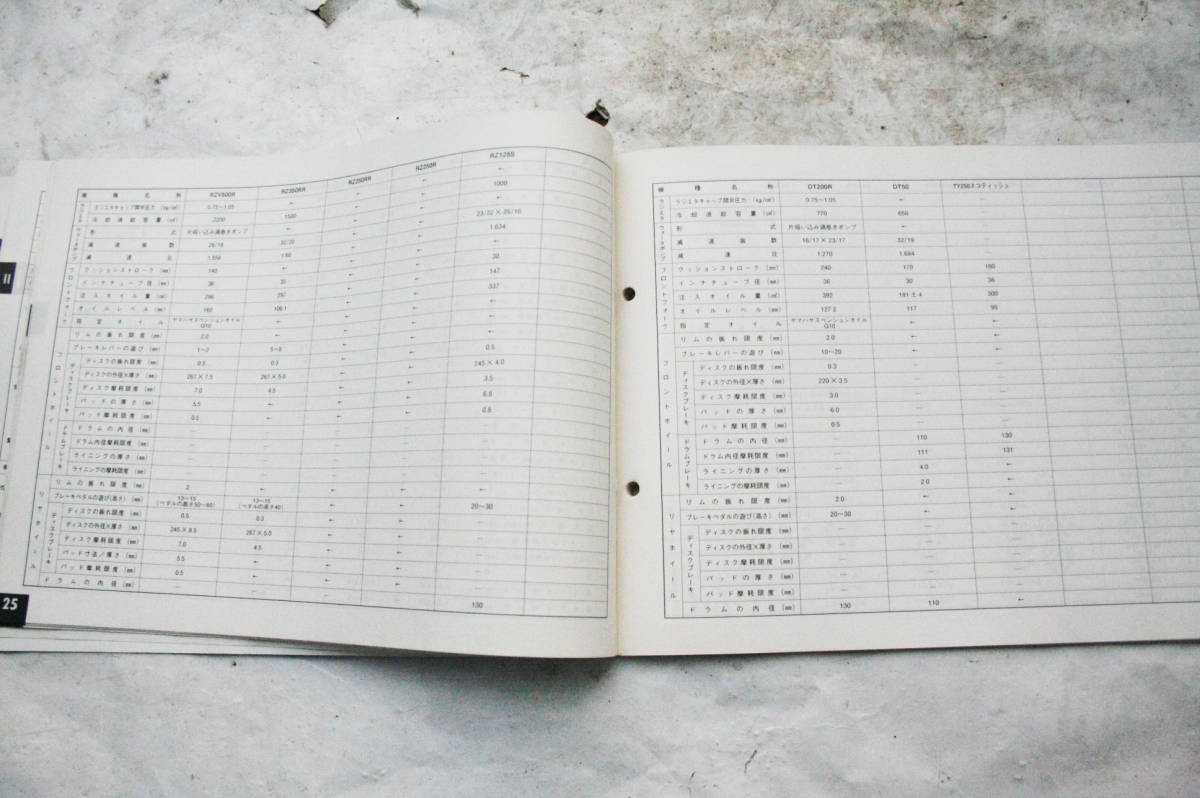 機種名称 RZV500R RZ350RR RZ250RR RZ250R RZ125S
ラジエタキャップ開弁圧力 (kg/㎠) 0.75~1.05 ← ← ← ←
冷却液総容量 (㎤) 1500 ← ← 1000
形式 片吸い込み渦巻きポンプ ← ← ←
減速歯数 32/20 ← ← 23/22 × 25/16
減速比 1.60 ← ← 1.634
クッションストローク (㎜) 140 ← ← ← 30
インナチューブ径 (㎜) 36 35 ← ← 147
注入オイル量 (㎤) 337
オイルレベル (㎜)
指定オイル ヤマハサスペンションオイル G10 ← ← ← ←
リムの振れ限度 (㎜) 2.0 ← ← ← ←
ブレーキレバーの遊び (㎜) ← ← 0.5
ディスクの振れ限度 (㎜) 0.5 0.3 ← ← 245 × 4.0
ディスクの外径×厚さ (㎜) 267 × 7.5 267 × 5.0 ← ← 3.5
ディスク摩耗限度 (㎜) 7.0 4.5 ← ← 6.8
パッドの厚さ (㎜) 5.5 ← ← ← 0.8
パッド摩耗限度 (㎜) 0.5 ← ← ←
ドラムの内径 (㎜) — — — — —
ドラム内径摩耗限度 (㎜) — — — — —
ライニングの厚さ (㎜) — — — — —
ライニングの摩耗限度 (㎜) — — — — —
リムの振れ限度 (㎜) 2 ← ← ← ←
ブレーキペダルの遊び(高さ) (㎜) 13~15 (ペダルの高さ50~60) 13~15 (ペダルの高さ40) ← ← 20~30
ディスクの振れ限度 (㎜) 0.5 0.3 ← ← —
ディスクの外径×厚さ (㎜) 245 × 8.5 267 × 5.0 ← ← —
ディスク摩耗限度 (㎜) 7.0 4.5 ← ← —
パッド寸法/厚さ (㎜) 5.5 ← ← ← —
パッド摩耗限度 (㎜) 0.5 ← ← ← —
ドラムの内径 (㎜) — — — — 130
フロントフォーク
フロントホイール
ディスクブレーキ
ドラムブレーキ
リヤホイール
ディスクブレーキ
II
25
機種名称 DT200R DT50 TY250スコティッシュ
ラジエタキャップ開弁圧力 (kg/㎠) 0.75~1.05 ← —
冷却液総容量 (㎤) 770 650 —
形式 片吸い込み渦巻きポンプ ← —
減速歯数 16/17 × 23/17 32/19 —
減速比 1.270 1.684 —
クッションストローク (㎜) 240 170 160
インナチューブ径 (㎜) 36 30 36
注入オイル量 (㎤) 392 181 ± 4 300
オイルレベル (㎜) 127.2 117 95
指定オイル ヤマハサスペンションオイル G10 ← ←
リムの振れ限度 (㎜) 2.0 ← ←
ブレーキレバーの遊び (㎜) 10~20 ← ←
ディスクの振れ限度 (㎜) 0.3 — —
ディスクの外径×厚さ (㎜) 220 × 3.5 — —
ディスク摩耗限度 (㎜) 3.0 — —
パッドの厚さ (㎜) 6.0 — —
パッド摩耗限度 (㎜) 0.5 — —
ドラムの内径 (㎜) — 110 130
ドラム内径摩耗限度 (㎜) — 111 131
ライニングの厚さ (㎜) — 4.0 ←
ライニングの摩耗限度 (㎜) — 2.0 ←
リムの振れ限度 (㎜) 2.0 ← ←
ブレーキペダルの遊び(高さ) (㎜) 20~30 ← ←
ディスクの振れ限度 (㎜) — — —
ディスクの外径×厚さ (㎜) — — —
ディスク摩耗限度 (㎜) — — —
パッドの厚さ (㎜) — — —
パッド摩耗限度 (㎜) — — —
ドラムの内径 (㎜) 130 110 ←
ラジエタ
ウォータポンプ
フロントフォーク
フロントホイール
ディスクブレーキ
ドラムブレーキ
リヤホイール
ディスクブレーキ